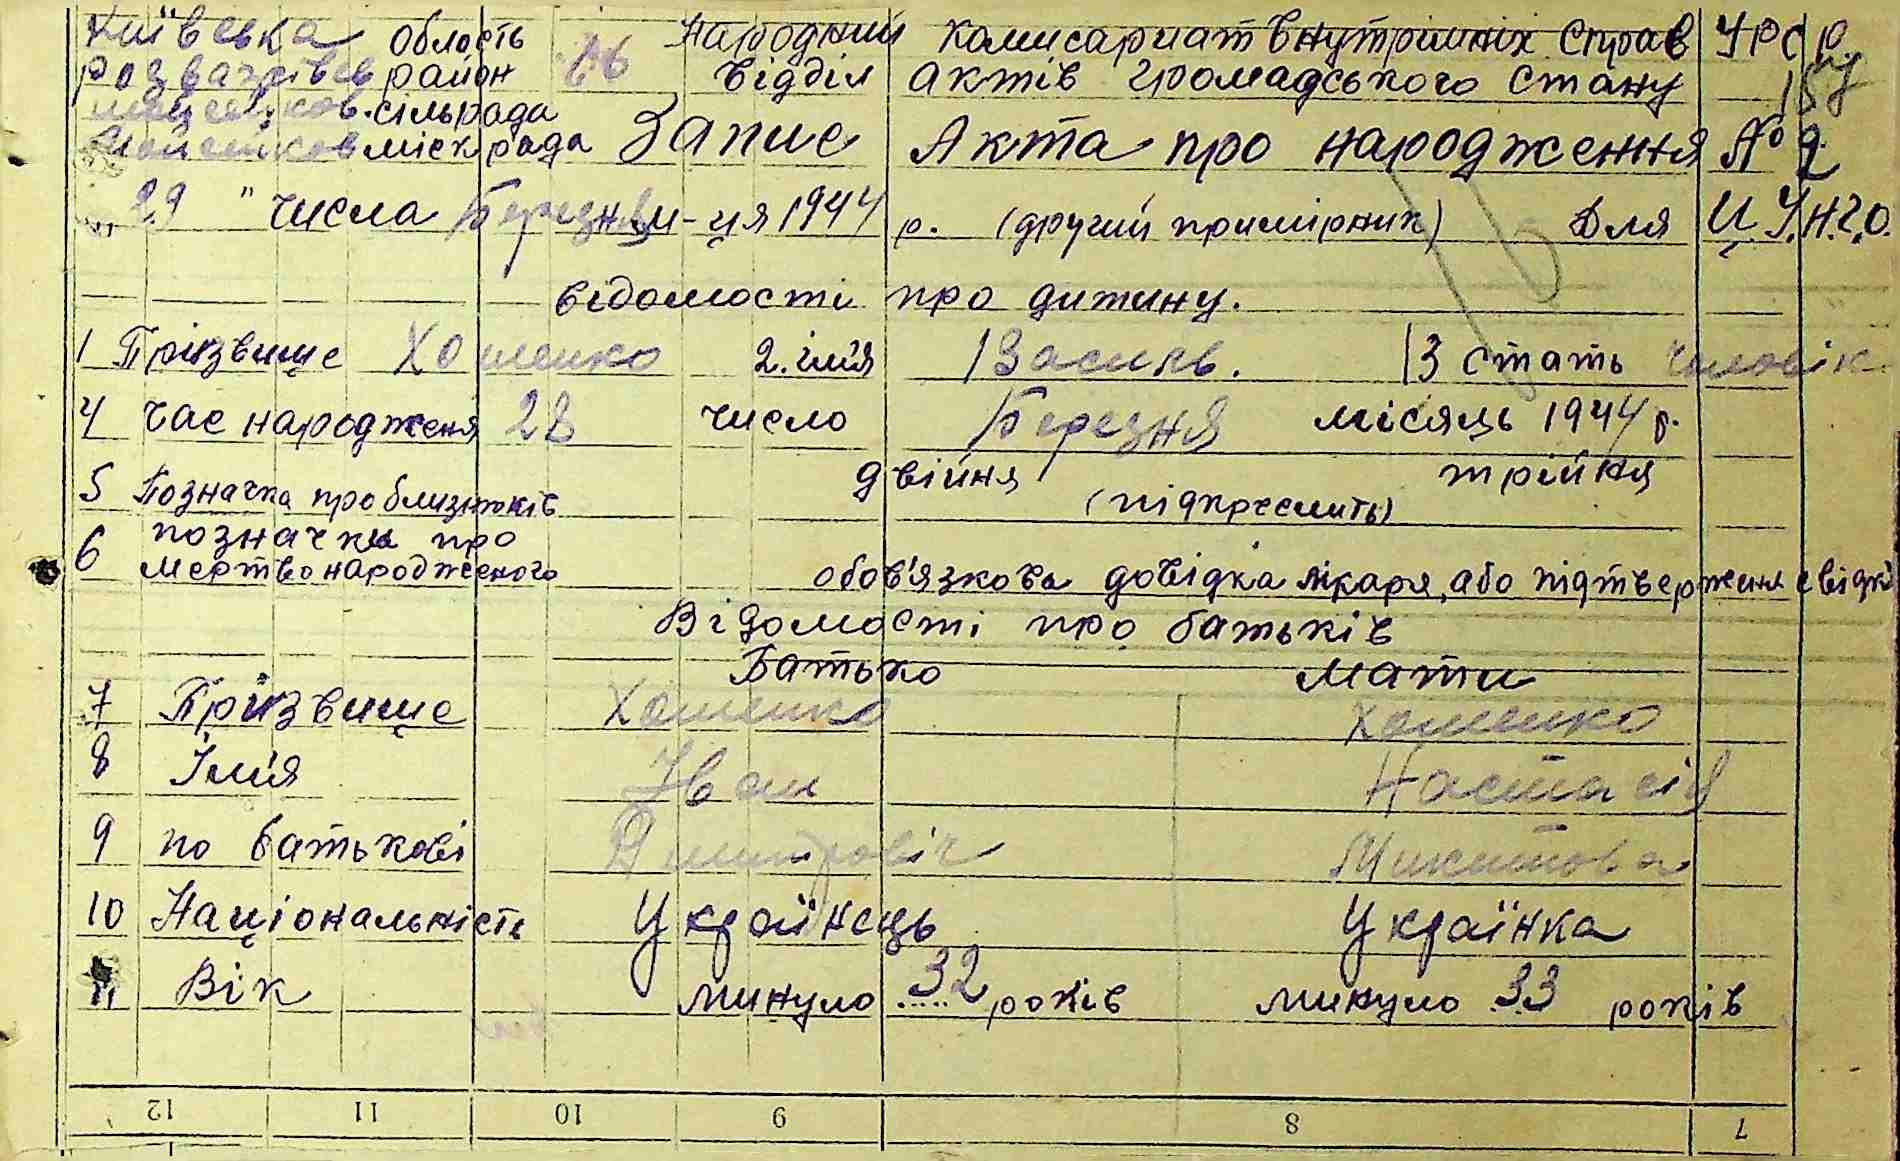 Київська область Народний комисариат внутрішніх справ УРСР
район Відділ актів громадського стану
сільрада
міськрада Запис Акта про народження № 2
29 " числа Березня м-ця 1944 р. (другий примірник) Для Ц.У.Н.Г.О.
відомості про дитину.
1 Прізвище Хоменко 2. імя Василь. 3 стать чоловік
4 час народженя 28 число Березня місяць 1944 р.
5 Позначка про близнюків двійня трійня
(підкреслить)
6 позначки про
мертвонародженого обов'язкова довідка лікаря, або підтверженя свідків
Відомості про батьків
Батько мати
7 Прізвище Хоменко Хоменко
8 Імя Іван Настасія
9 по батькові Дмитровіч Микитова
10 Національність Українець Українка
11 Вік минуло 32 років минуло 33 років
12 11 10 9 8 7